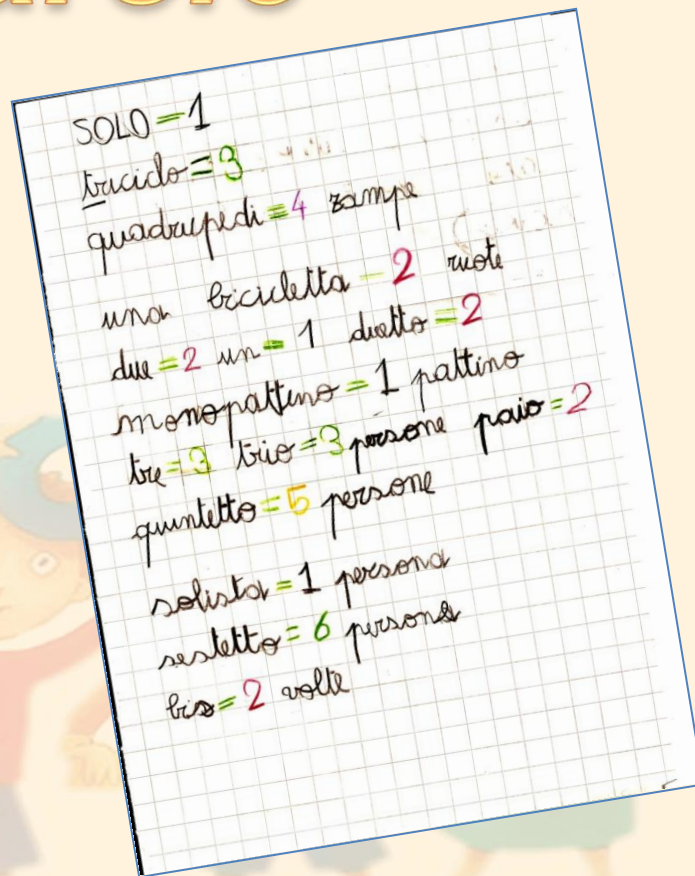 SOLO = 1
triciclo = 3
quadrupedi = 4 zampe
una bicicletta = 2 ruote
due = 2 un = 1 duetto = 2
monopattino = 1 pattino
tre = 3 trio = 3 persone paio = 2
quintetto = 5 persone
solista = 1 persona
sestetto = 6 persone
bis = 2 volte